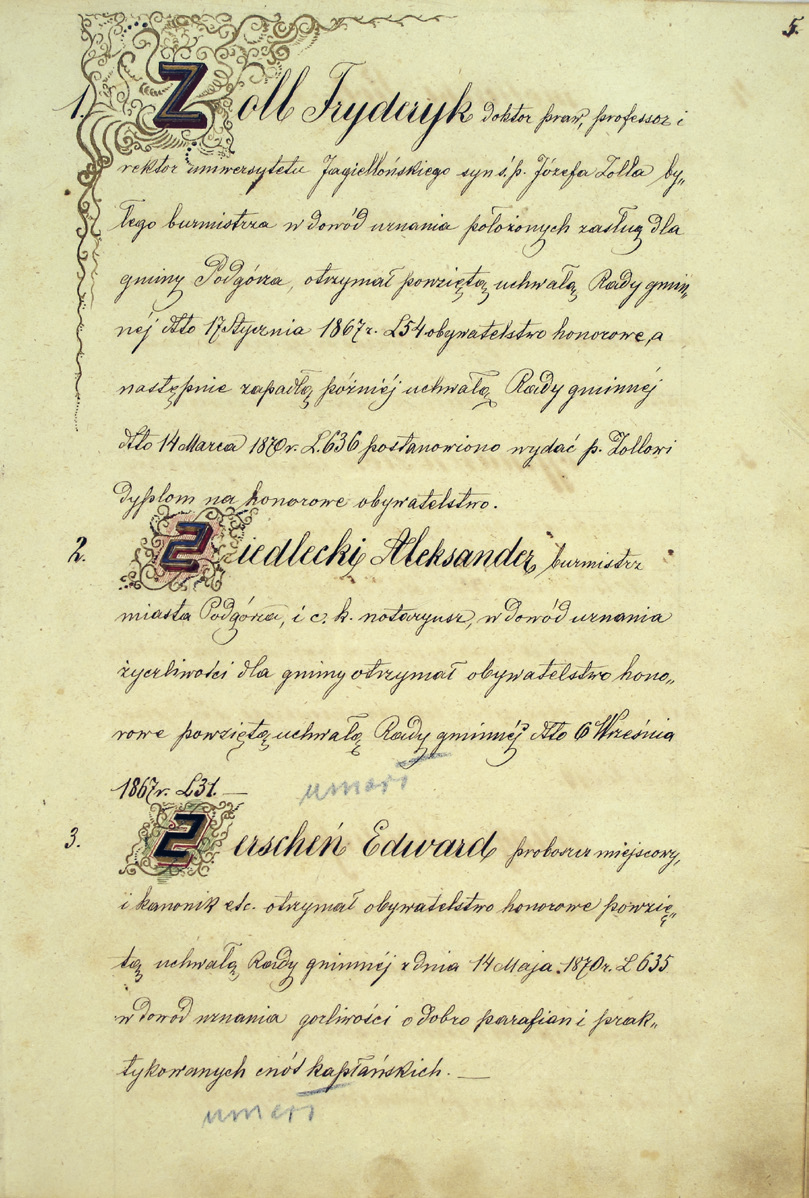 5.
1. Zoll Fryderyk doktor praw, professor i
rektor uniwersytetu Jagiellońskiego syn ś.p. Józefa Zolla by„
łego burmistrza w dowód uznania położonych zasług dla
gminy Podgórza, otrzymał powziętą uchwałą Rady gmin„
néj dto 17 Stycznia 1867 r. L 54 obywatelstwo honorowe, a
następnie zapadłą późniéj uchwałą Rady gminnéj
dto 14 Marca 1870 r. L. 636 postanowiono wydać p. Zollowi
dyplom na honorowe obywatelstwo.
2. Ziedlecki Aleksander burmistrz
miasta Podgórza, i c. k. notaryusz, w dowód uznania
życzliwości dla gminy otrzymał obywatelstwo hono„
rowe powziętą uchwałą Rady gminnéj dto 6 Września
1867 r. L 31. —
umarł
3. Zerscheń Edward proboszcz miejscowy,
i kanonik etc. otrzymał obywatelstwo honorowe powzię„
tą uchwałą Rady gminnéj z dnia 14 Maja 1870 r. L 635
w dowód uznania gorliwości o dobro parafian i prak„
tykowanych cnót kapłańskich. —
umarł